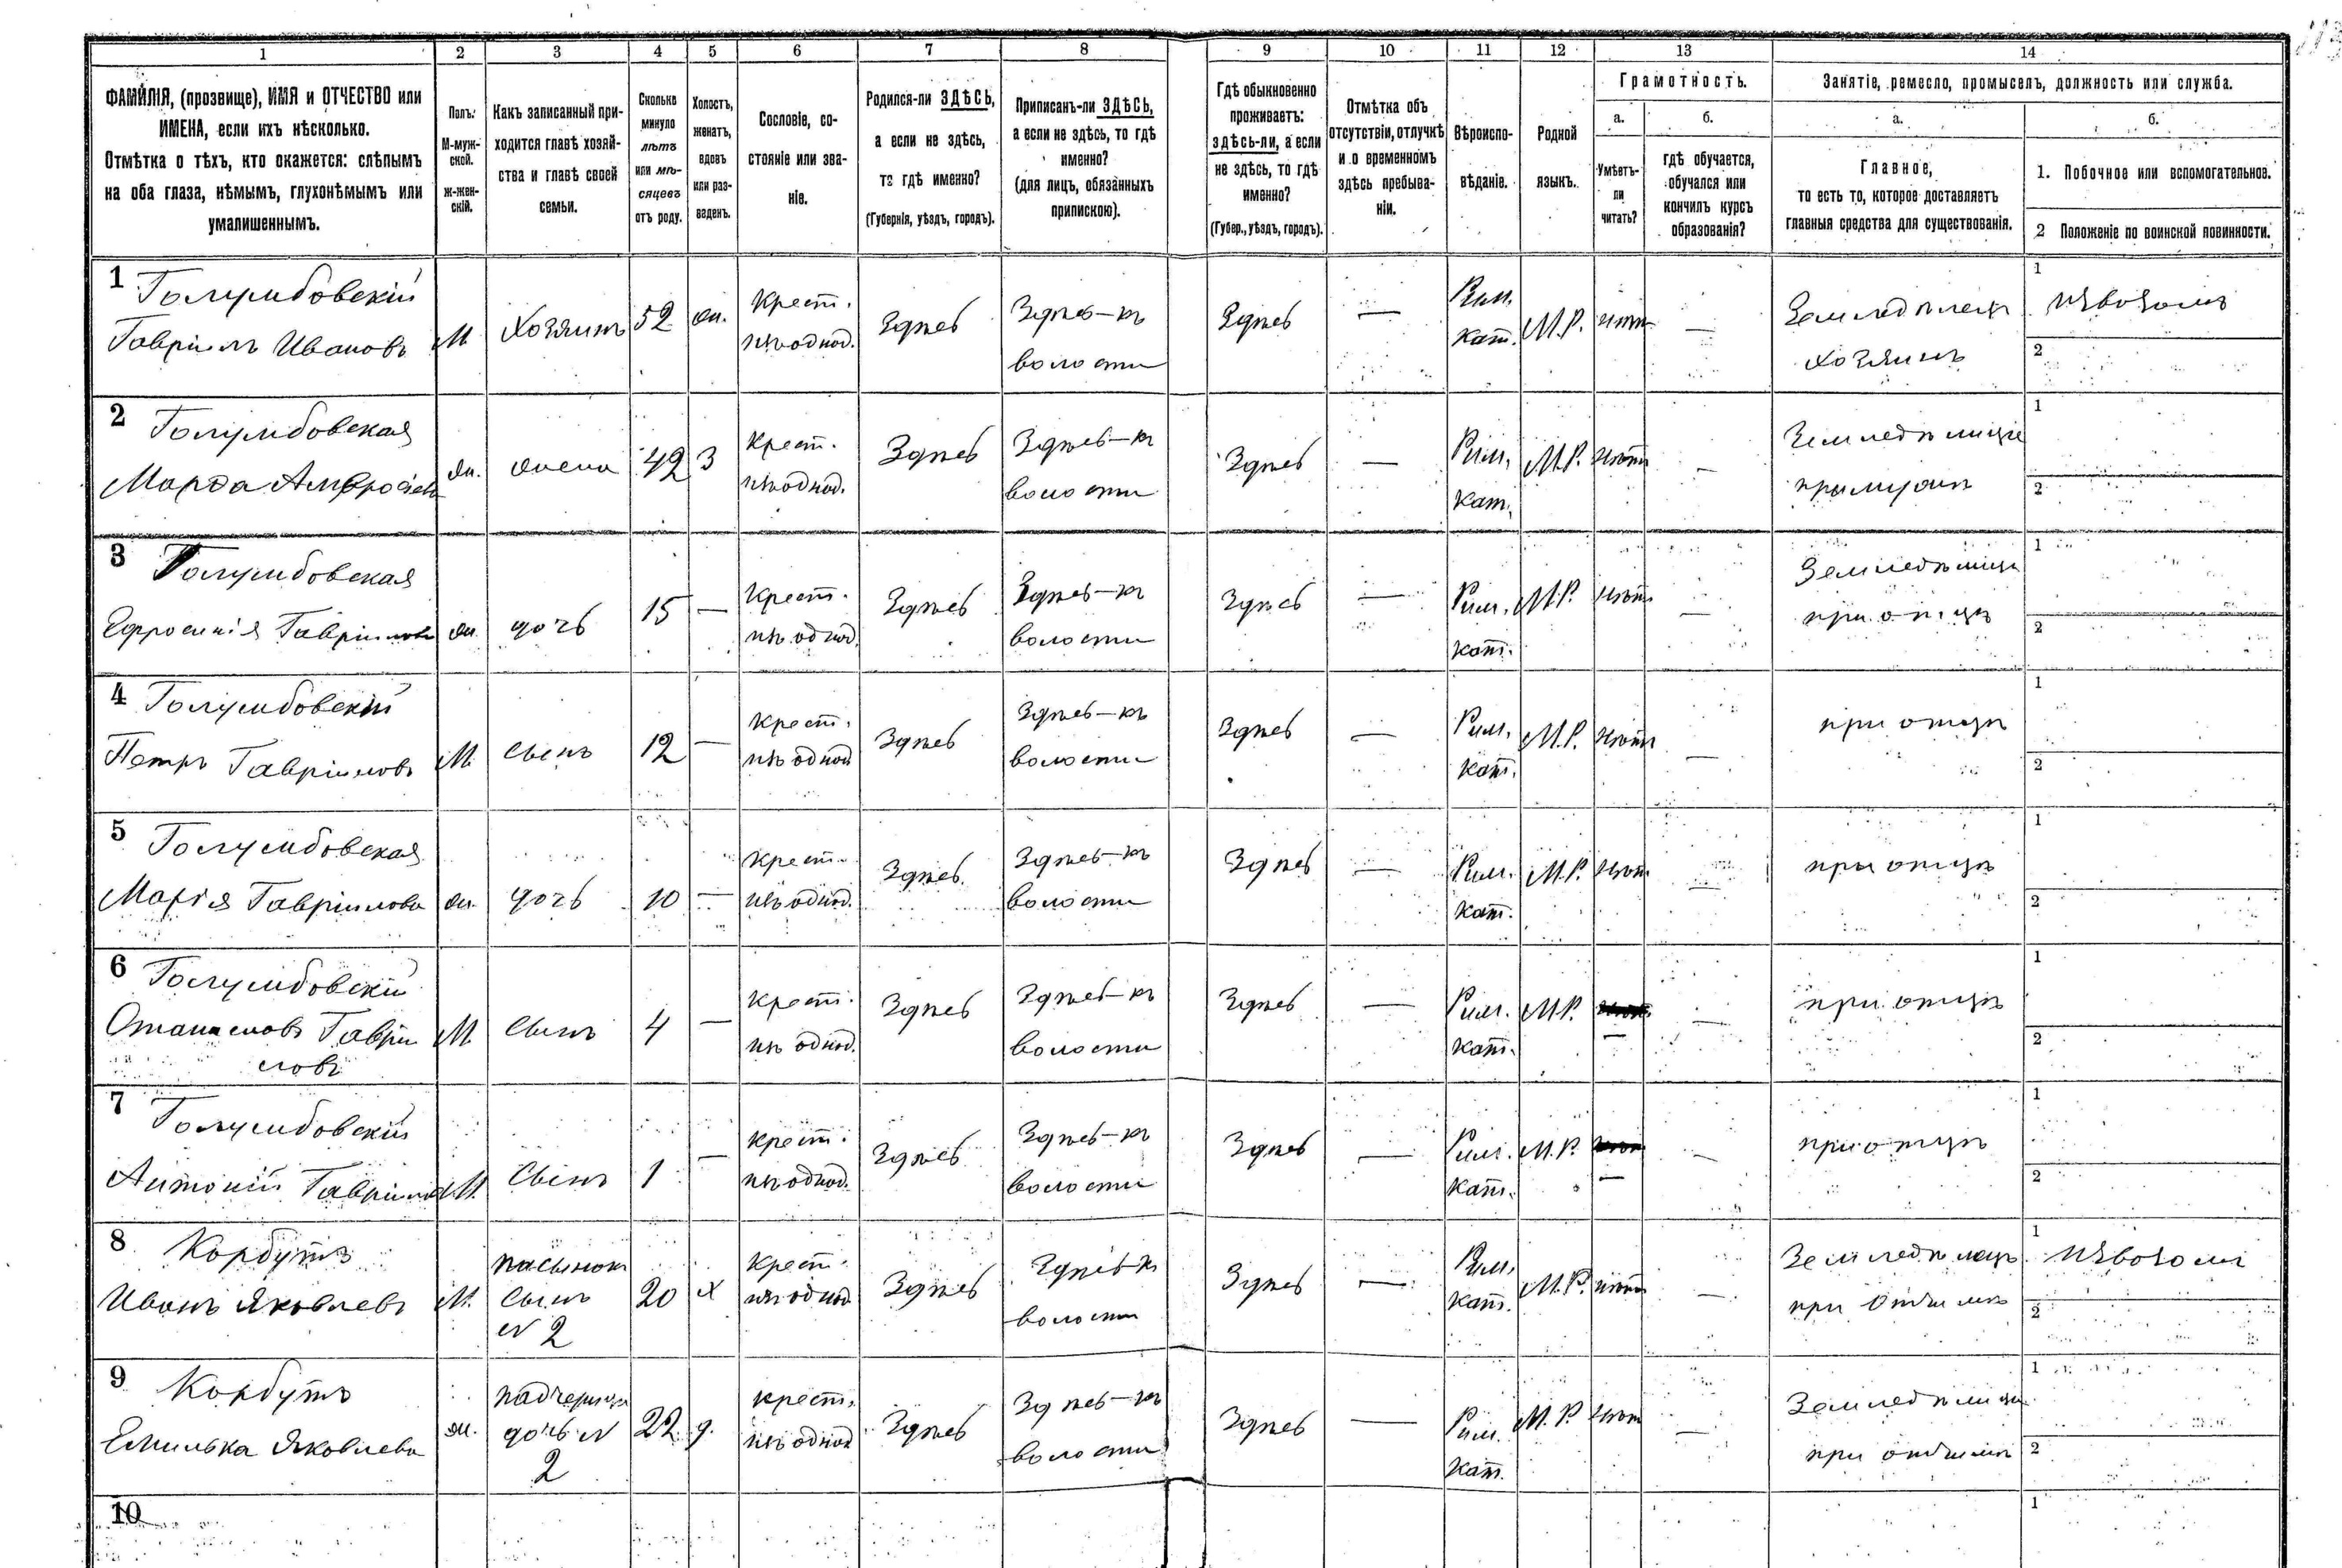 1 2 3 4 5 6 7 8 9 10 11 12 13 14
ФАМИЛІЯ, (прозвище), ИМЯ и ОТЧЕСТВО или
ИМЕНА, если ихъ нѣсколько.
Отмѣтка о тѣхъ, кто окажется: слѣпымъ
на оба глаза, нѣмымъ, глухонѣмымъ или
умалишеннымъ.
Полъ:
М-муж-
ской.
ж-жен-
скій.
Какъ записанный при-
ходится главѣ хозяй-
ства и главѣ своей
семьи.
Сколько
минуло
лѣтъ
или мѣ-
сяцевъ
отъ роду.
Холостъ,
женатъ,
вдовъ
или раз-
веденъ.
Сословіе, со-
стояніе или зва-
ніе.
Родился-ли ЗДѢСЬ,
а если не здѣсь,
то гдѣ именно?
(Губернія, уѣздъ, городъ).
Приписанъ-ли ЗДѢСЬ,
а если не здѣсь, то гдѣ
именно?
(для лицъ, обязанныхъ
припискою).
Гдѣ обыкновенно
проживаетъ:
здѣсь-ли, а если
не здѣсь, то гдѣ
именно?
(Губер., уѣздъ, городъ).
Отмѣтка объ
отсутствіи, отлучкѣ
и о временномъ
здѣсь пребыва-
ніи.
Вѣроиспо-
вѣданіе.
Родной
языкъ.
Грамотность.
а.
Умѣетъ-
ли
читать?
б.
гдѣ обучается,
обучался или
кончилъ курсъ
образованія?
Занятіе, ремесло, промыселъ, должность или служба.
а.
Главное,
то есть то, которое доставляетъ
главныя средства для существованія.
б.
1. Побочное или вспомогательное.
2 Положеніе по воинской повинности.
1 Голумбовскій
Гавріилъ Ивановъ
М
Хозяинъ
52
жн.
Крест.
изъ однод.
Здѣсь
Здѣсь-къ
волости
Здѣсь
—
Рим.
Кат.
М.Р.
нѣтъ
—
Земледѣлецъ
хозяинъ
1 извозомъ
2
2 Голумбовская
Марѳа Амвросіева
жн.
жена
42
З
Крест.
изъ однод.
Здѣсь
Здѣсь-къ
волости
Здѣсь
—
Рим.
Кат.
М.Р.
нѣтъ
—
1
2
3 Голумбовская
Ефросинія Гавріилова
жн.
дочь
15
—
Крест.
изъ однод.
Здѣсь
Здѣсь-къ
волости
Здѣсь
—
Рим.
Кат.
М.Р.
нѣтъ
—
при отцѣ
1
2
4 Голумбовскій
Петръ Гавріиловъ
М.
сынъ
12
—
Крест.
изъ однод.
Здѣсь
Здѣсь-къ
волости
Здѣсь
—
Рим.
Кат.
М.Р.
нѣтъ
—
при отцѣ
1
2
5 Голумбовская
Марія Гавріилова
жн.
дочь
10
—
Крест.
изъ однод.
Здѣсь
Здѣсь-къ
волости
Здѣсь
—
Рим.
Кат.
М.Р.
нѣтъ
—
при отцѣ
1
2
6 Голумбовскій
Гаврі
ловъ
М.
сынъ
4
—
Крест.
изъ однод.
Здѣсь
Здѣсь-къ
волости
Здѣсь
—
Рим.
Кат.
М.Р.
—
—
при отцѣ
1
2
7 Голумбовскій
Антоній Гавріиловъ
М.
сынъ
1
—
Крест.
изъ однод.
Здѣсь
Здѣсь-къ
волости
Здѣсь
—
Рим.
Кат.
М.Р.
—
—
при отцѣ
1
2
8 Корбутъ
Иванъ Яковлевъ
М.
пасынокъ
сынъ
N 2
20
х
Крест.
изъ однод.
Здѣсь
Здѣсь-къ
волости
Здѣсь
—
Рим.
Кат.
М.Р.
нѣтъ
—
Земледѣлецъ
при отчимѣ
1 извозомъ
2
9 Корбутъ
Емилька Яковлева
жн.
падчерица
дочь N
2
22
д.
крест.
изъ однод.
Здѣсь
Здѣсь-къ
волости
Здѣсь
—
Рим.
Кат.
М.Р.
нѣтъ
—
при отчимѣ
1
2
10
1